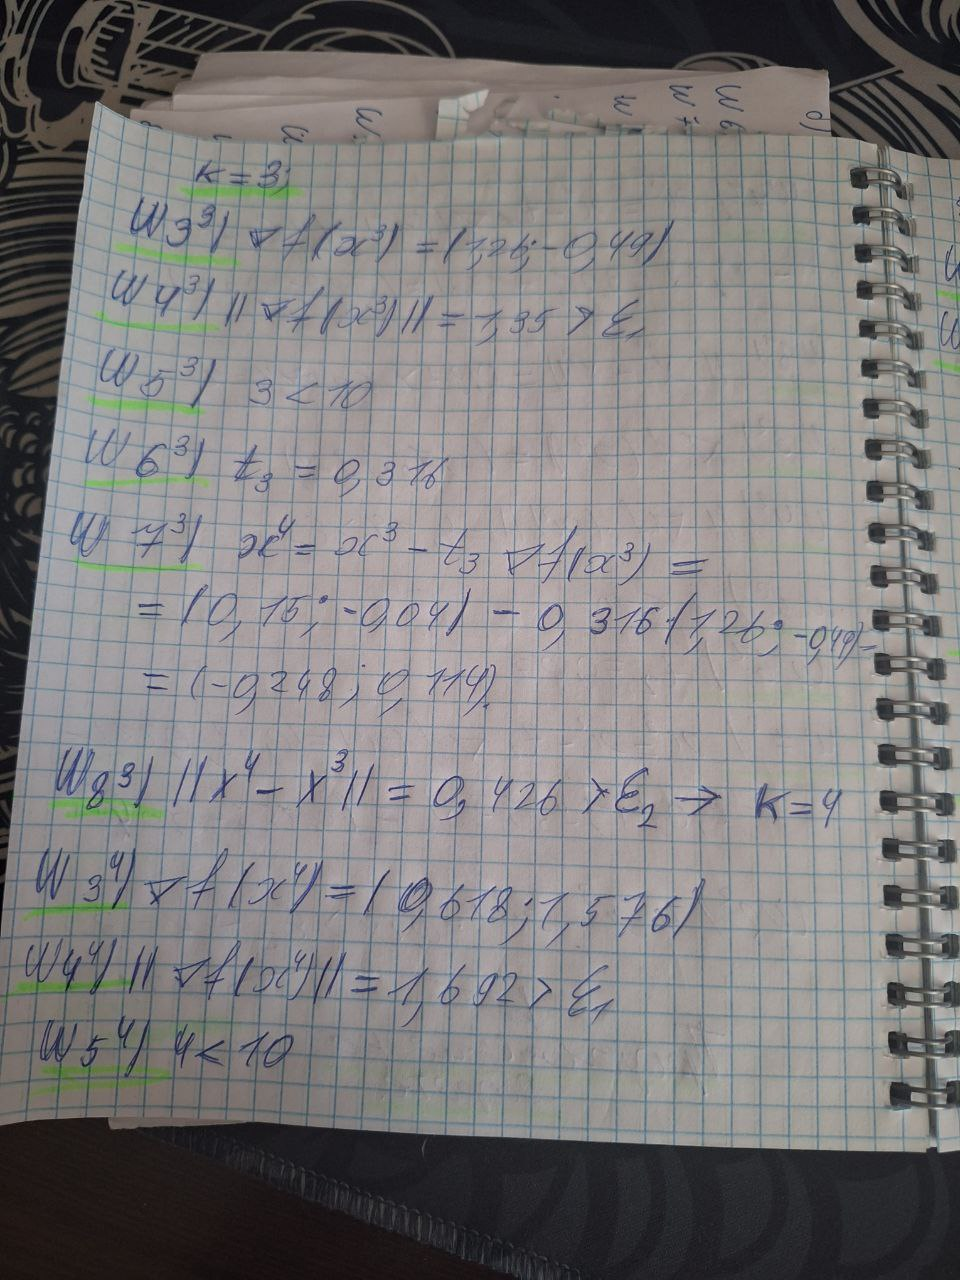 K = 3;
Ш3³) ∇f(x³) = (1,26; -0,49)
Ш4³) ||∇f(x³)|| = 1,35 > ℰ₁
Ш5³) 3 < 10
Ш6³) t₃ = 0,316
Ш7³) x⁴ = x³ - t₃ ∇f(x³) =
= (0,15; -0,04) - 0,316 (1,26; -0,49) =
= (-0,248; 0,114).
Ш8³) ||x⁴ - x³|| = 0,426 > ℰ₂ → K = 4
Ш3⁴) ∇f(x⁴) = (0,618; 1,576)
Ш4⁴) ||∇f(x⁴)|| = 1,692 > ℰ₁
Ш5⁴) 4 < 10